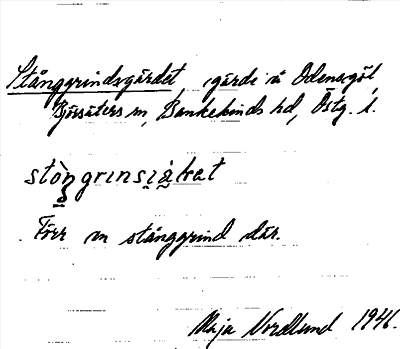 Stånggrindsgärdet gärde å Odensgöl,
Björsäters sn, Bankekinds hd, Östg. l.
stòŋgrinsja̤ḷet
Förr en stånggrind där.
Maja Nordlund 1946.